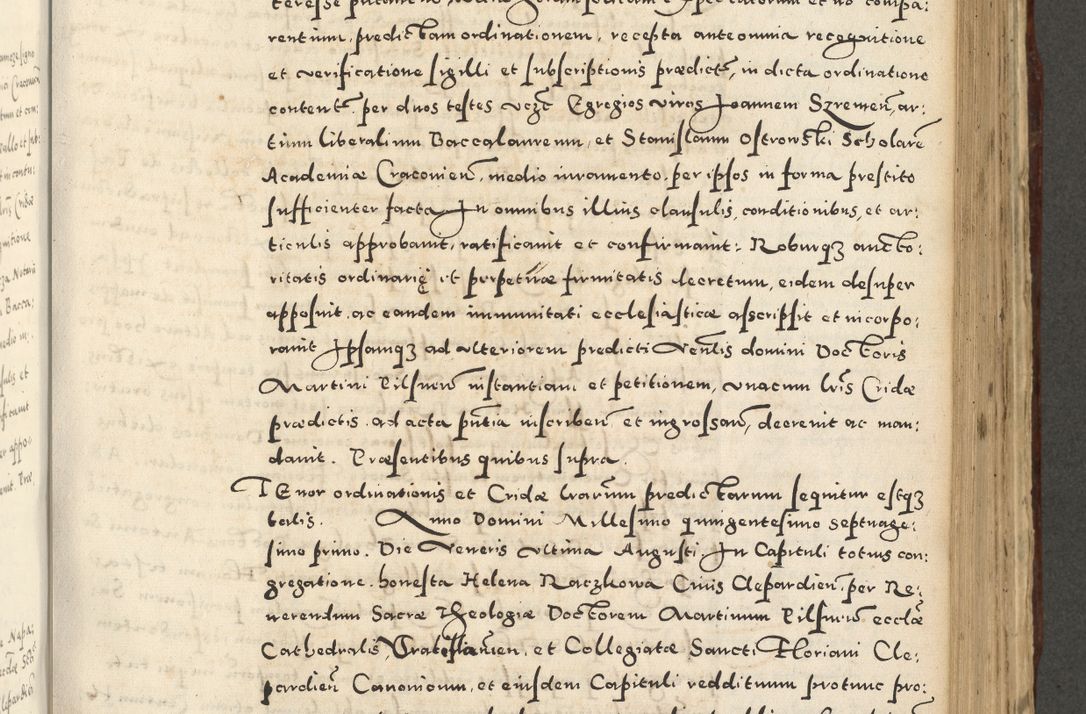 rentium, predictam ordinationem, recepta ante omnia recognitione
et verificatione sigilli et subscriptionis prædict, in dicta ordinatione
content per duos testes vczt Egregios viros Joannem Szremen, ar:
tium liberalium Baccalaureum, et Stanislaum Ostrowski Scholarē
Academiæ Cracovien, medio iuramento, per ipsos in forma prestito
sufficienter facta, In omnibus illius clausulis, conditionibus, et ar:
ticulis approbavit, ratificavit et confirmavit: Roburqz aucto:
ritatis ordinarię et perpetuæ firmitatis decretum, eidem desuper
apposuit, ac eandem immunitati ecclesiasticæ asscripsit et incorpo:
ravit Ipsamqz ad ulteriorem predicti Venlis domini Doctoris
Martini Pilsneñ instantiam et petitionem, unacum lr̃is Cridæ
prædictis, ad acta pñtia inscribeñ et ingrossañ, decrevit ac man:
davit. Præsentibus quibus supra.
TEnor ordinationis et Cridæ lrarum predictarum sequitur estqz
talis. Anno Domini Millesimo quingentesimo septuage:
simo primo. Die Veneris ultima Augusti. In Capituli totius con:
gregatione. honesta Helena Raczkowa Civis Clepardieñ, per Re:
verendum Sacræ Theologiæ Doctorem Martinum Pilsneñ ecclæ
Cathedralis Vratislavien, et Collegiatæ Sancti Floriani Cle:
pardieñ Canonicum, et eiusdem Capituli redditum protunc pro: